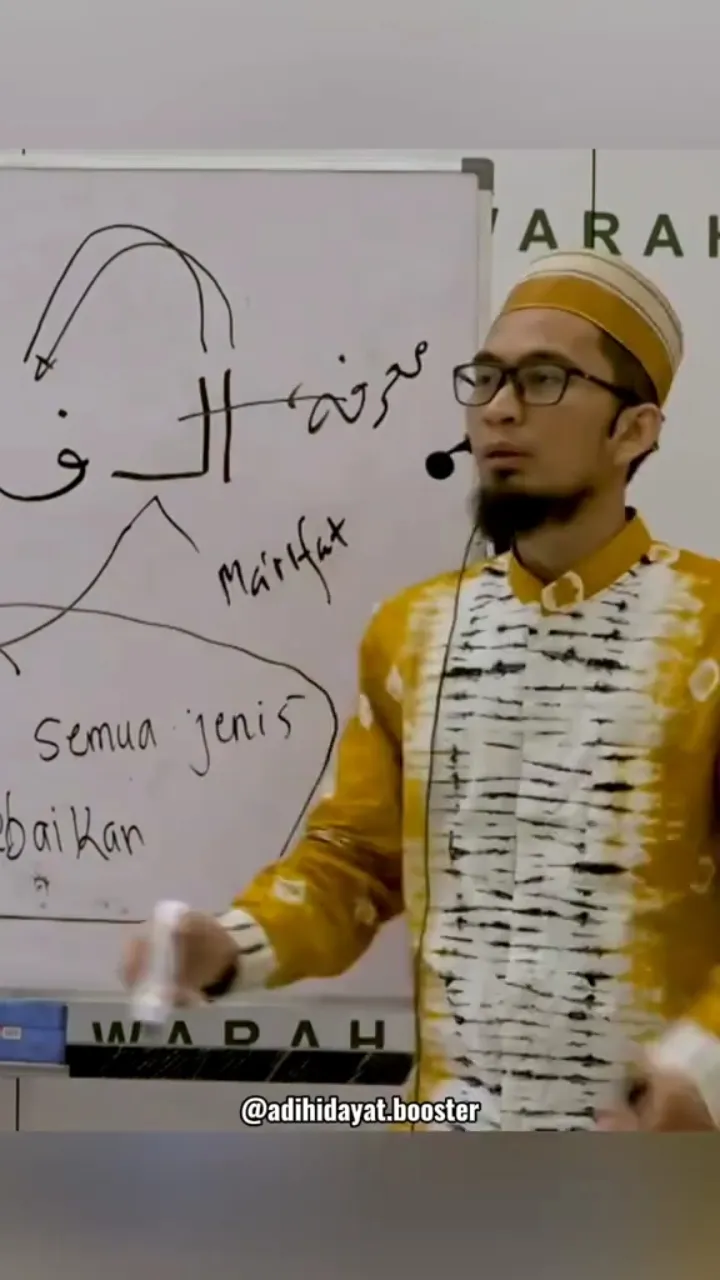 WARAH
معرفة
الف
Ma'rifat
Semua jenis
ebaikan
WARAH
@adihidayat.booster